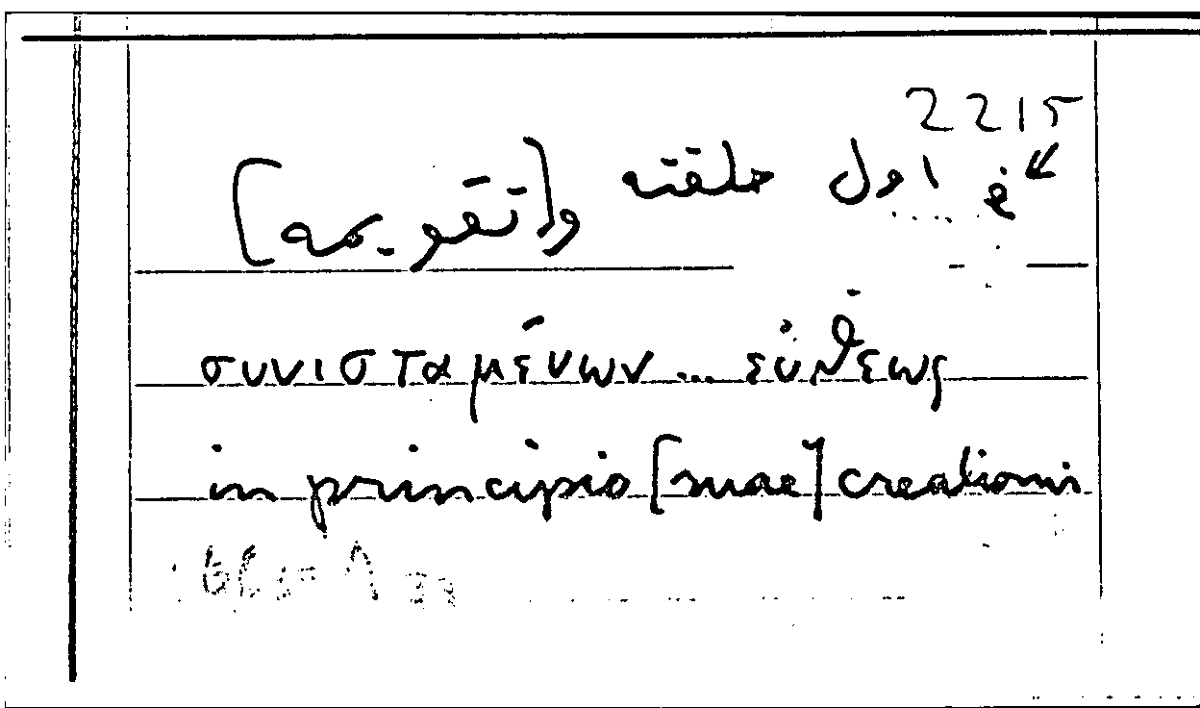 2215
في اول خلقته و[تقويمه]
συνισταμένων ... εὐθέως
in principio [suae] creationis